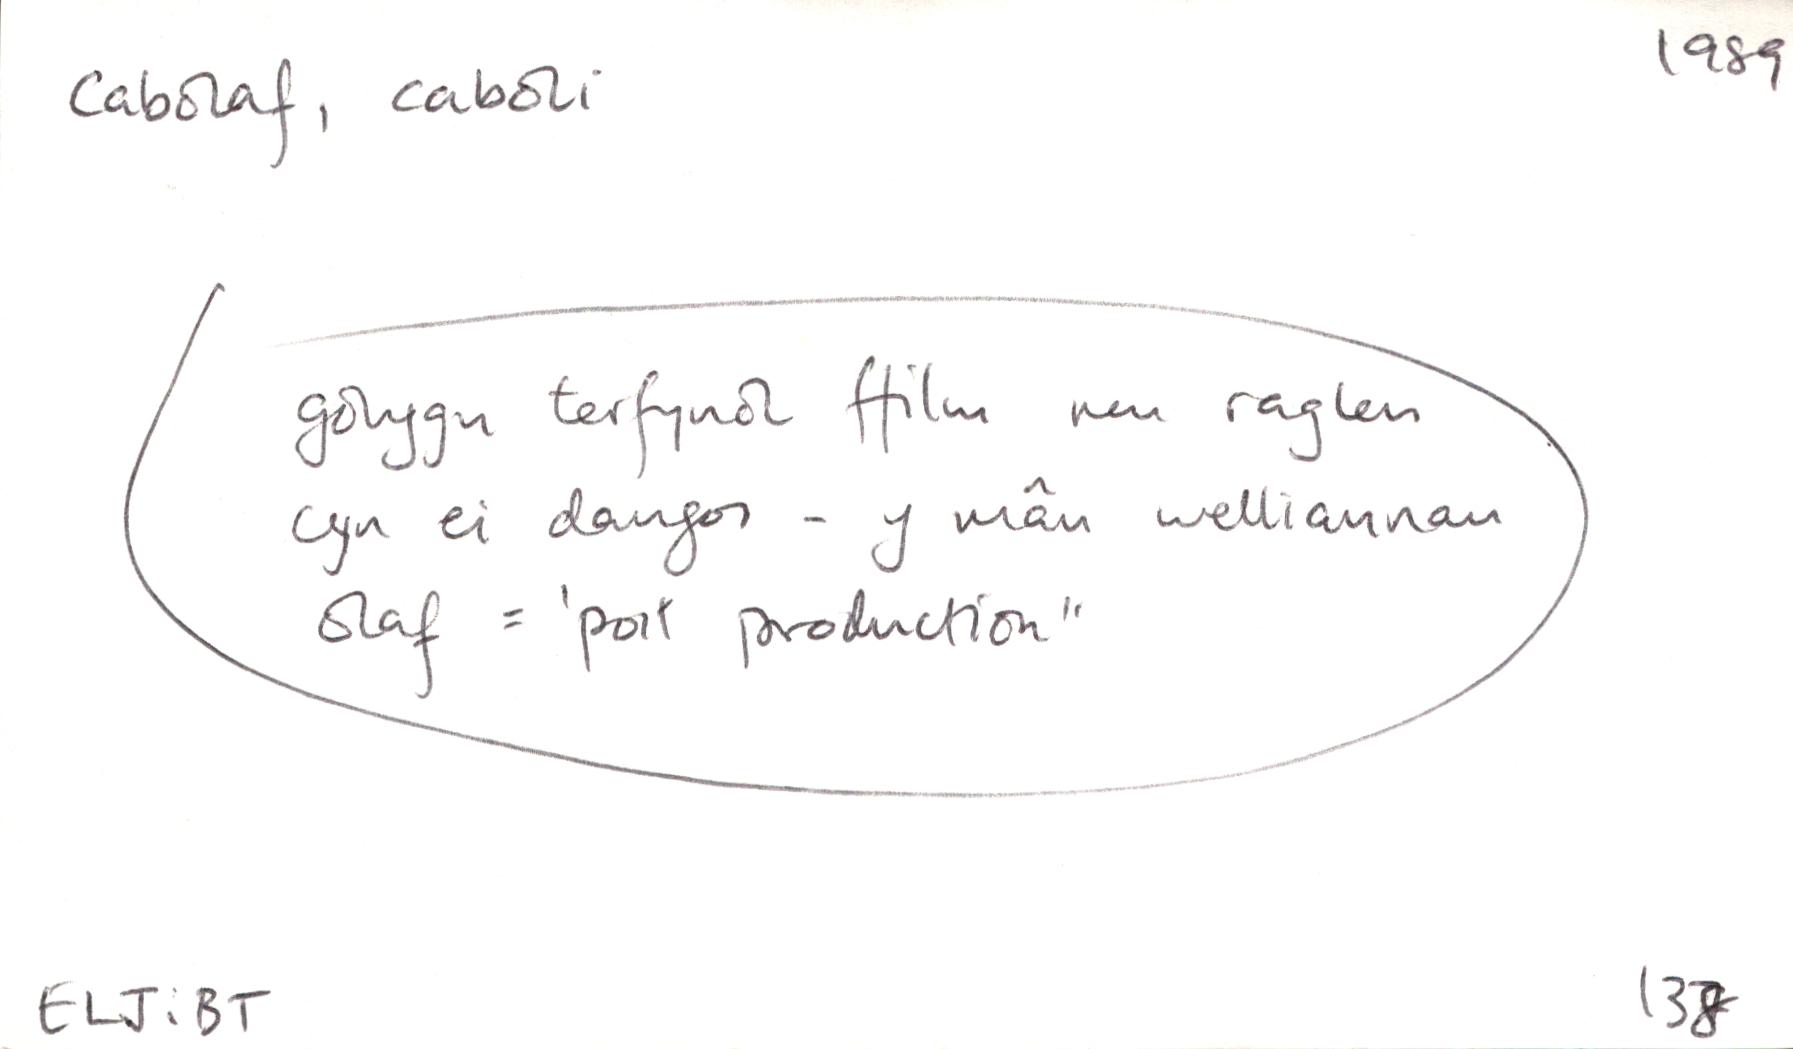 Cabolaf, caboli 1989
golygu terfynol ffilm neu raglen
cyn ei dangos - y mân welliannau
olaf = 'post production"
ELJ:BT